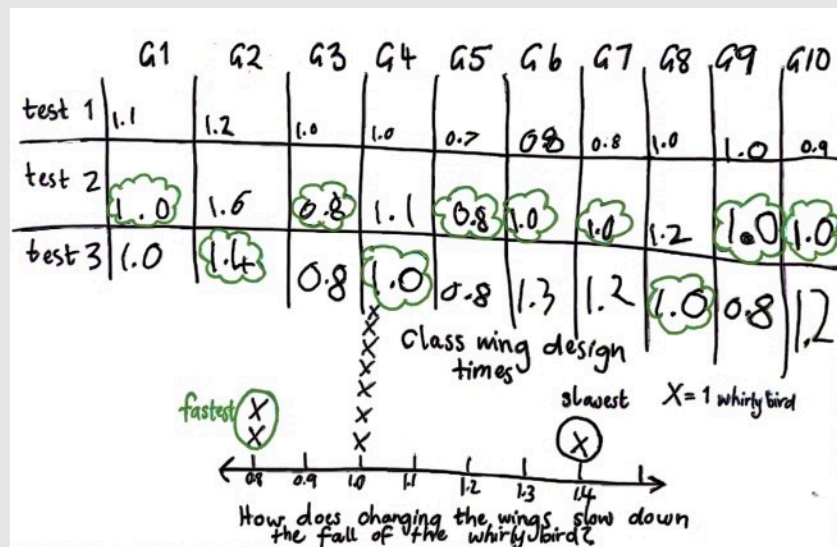 G1 G2 G3 G4 G5 G6 G7 G8 G9 G10
test 1 1.1 1.2 1.0 1.0 0.7 0.8 0.8 1.0 1.0 0.9
test 2 1.0 1.6 0.8 1.1 0.8 1.0 1.0 1.2 1.0 1.0
test 3 1.0 1.4 0.8 1.0 0.8 1.3 1.2 1.0 0.8 1.2
Class wing design
times
fastest
slowest
X = 1 whirlybird
X
X
X
X
X
X
X
X
X
X
0.8 0.9 1.0 1.1 1.2 1.3 1.4
How does changing the wings slow down
the fall of the whirlybird?